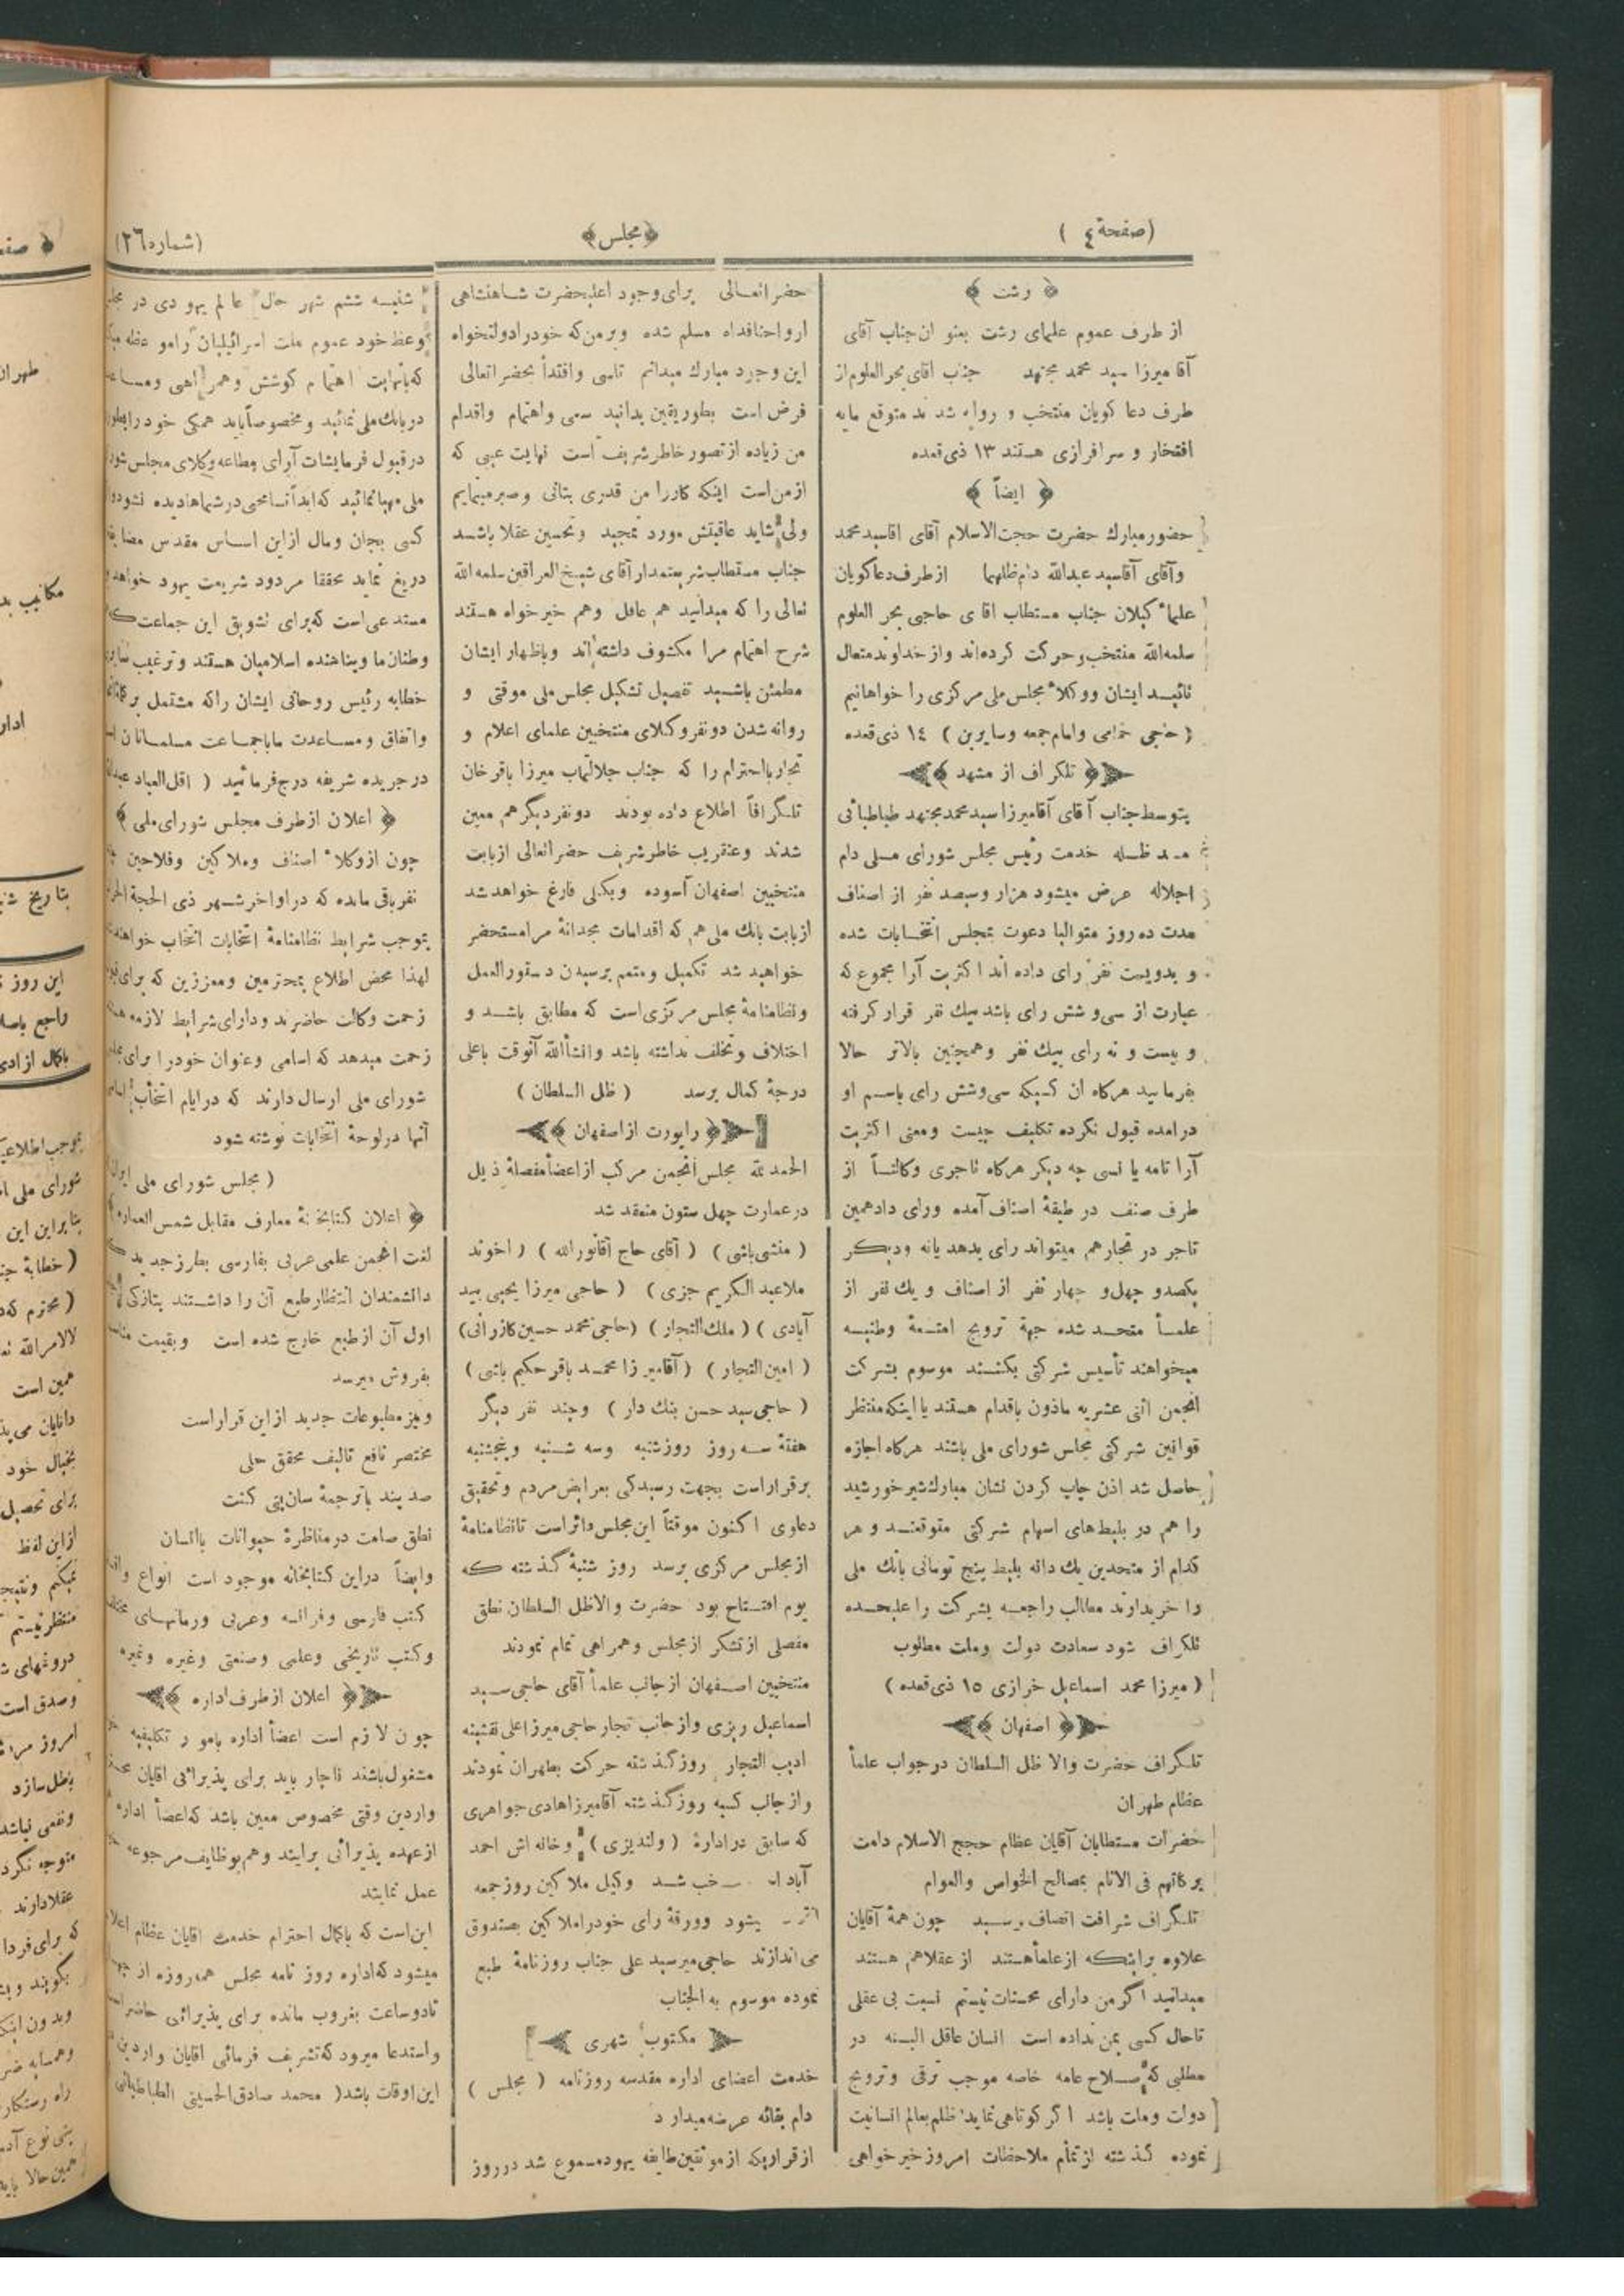 (صفحهٔ ٤ )
﴿مجلس﴾
(شماره ٢٦)
﴿ رشت ﴾
از طرف عموم علمای رشت بعنو ان جناب آقای
آقا میرزا سید محمد مجتهد جناب اقای بحرالعلوم از
طرف دعا کویان منتخب و روانه شد ند متوقع مایه
افتخار و سرافرازی هستند ١٣ ذی قعده
﴿ ایضاً ﴾
حضور مبارك حضرت حجت‌الاسلام آقای اقاسید محمد
وآقای آقاسید عبدالله دام ظلهما از طرف دعاکویان
علماء کیلان جناب مستطاب اقا ی حاجی بحر العلوم
سلمه‌الله منتخب و حرکت کرده‌اند و از خداوند متعال
تائیـد ایشان ووکلاء مجلس ملی مرکزی را خواهانیم
( حاجی خمامی وامام جمعه وسایرین ) ١٤ ذی قعده
﴿ تلکر اف از مشهد ﴾
بتوسط جناب آ قای آقامیرزا سید محمد مجتهد طباطبائی
مـد ظـله خدمت رئیس مجلس شورای مـلی دام
اجلاله عرض میشود هزار وسیصد نفر از اصناف
مدت ده روز متوالیا دعوت بمجلس انتخـابات شده
و بدویست نفر رای داده اند اکثریت آرا مجموع که
عبارت از سی و شش رای باشد بیك نفر قرار کرفته
و بیست و نه رای بیك نفر وهمچنین بالاتر حالا
بفرما یید هرکاه ان کـیکه سی وشش رای باسـم او
درامده قبول نکرده تکلیف چیست ومعنی اکثریت
آرا تامه یا نسی چه دیکر هرکاه تاجری وکالتـاً از
طرف صنف در طبقهٔ اصناف آمده ورای داد همین
تاجر در تجار هم میتواند رای بدهد یانه ودیـکر
یکصدو چهل‌و چهار نفر از اصناف و یك نفر از
علمـاً متحـد شده جهة ترویج امتعـهٔ وطنیـه
میخواهند تأسیس شرکتی بکننـد موسوم بشرکت
انجمن اثنی عشریه ماذون باقدام هستند یا اینکه منتظر
قوانین شرکتی مجلس شورای ملی باشند هرکاه اجازه
حاصل شد اذن چاپ کردن نشان مبارك شیر خورشید
را هم در بلیط‌های اسهام شرکتی متوقعنـد و هر
کدام از متحدین یك دانه بلیط پنج تومانی بانك ملی
را خریدارند مطالب راجعـه بشرکت را علیحـده
تلکراف شود سعادت دولت وملت مطلوب
( میرزا محمد اسماعیل خرازی ١٥ ذی قعده )
﴿ اصفهان ﴾
تلـگراف حضرت والا ظل السلطان درجواب علمأ
عظام طهر ان
حضرات مستطابان آقایان عظام حجج الاسلام دامت
برکاتهم فی الانام بمصالح الخواص والعوام
تلـگراف شرافت اتصاف رسـید چون همهٔ آقایان
علاوه براینـکه از علمأ هستند از عقلا هم هستند
میدانید اگر من دارای محسنات نیستم نسبت بی عقلی
تاحال کسی بمن نداده است انسان عاقل البتـه در
مطلبی که صـلاح عامه خاصه موجب ترقی وترویج
دولت وملت باشد اگر کوتاهی نماید ظلم بعالم انسانیت
نموده گـذشته از تمام ملاحظات امروز خیر خواهی
حضر اتعـالی برای وجود اعلیحضرت شـاهنشاهی
ارواحنافداه مسلم شده وبرمن که خود را دولتخواه
این وجود مبارك میدانم تاسی واقتدأ بحضر اتعالی
فرض است بطور یقین بدانید سعی واهتمام واقدام
من زیاده از تصور خاطر شریف است نهایت عیبی که
از من است اینکه کار را من قدری بتانی وصبر مینمایم
ولی شاید عاقبتش مورد تمجید وتحسین عقلا باشـد
جناب مستطاب شریعتمدار آقای شیـخ العراقین سلمه الله
تعالی را که میدانید هم عاقل وهم خیر خواه هستند
شرح اهتمام مرا مکشوف داشته اند وباظهار ایشان
مطمئن باشـید تفصیل تشکیل مجلس ملی موقتی و
روانه شدن دو نفر وکلای منتخبین علمای اعلام و
تجار بااحترام را که جناب جلالتماب میرزا باقر خان
تلـگرافاً اطلاع داده بودند دونفر دیگر هم معین
شدند وعنقریب خاطر شریف حضر اتعالی از بابت
منتخبین اصفهان آسوده وبکلی فارغ خواهد شد
از بابت بانك ملی هم که اقدامات مجدانهٔ مرا مستحضر
خواهید شد تکمیل ومتمم برسیدن دستورالعمل
ونظامنامهٔ مجلس مرکزی است که مطابق باشـد و
اختلاف وتخلف نداشته باشد وانشأالله آنوقت باعلی
درجهٔ کمال برسد ( ظل السلطان )
﴿ راپورت از اصفهان ﴾
الحمد لله مجلس انجمن مرکب از اعضأ مفصلهٔ ذیل
در عمارت چهل ستون منعقد شد
( منشی باشی ) ( آقای حاج آقا نورالله ) ( اخوند
ملاعبد الکریم جزی ) ( حاجی میرزا یحیی بید
آبادی ) ( ملك التجار ) (حاجی محمد حسین کازرانی)
( امین التجار ) ( آقامیر زا محمـد باقر حکیم باشی )
( حاجی سید حسن بنك دار ) وچند نفر دیگر
هفتهٔ سـه روز روز شنبه وسه شـنبه وپنجشنبه
برقرار است بجهت رسیدکی بعرایض مردم وتحقیق
دعاوی اکنون موقتاً این مجلس دائر است تا نظامنامهٔ
از مجلس مرکزی برسد روز شنبهٔ گـذشته کـه
یوم افتـتاح بود حضرت والا ظل السلطان نطق
مفصلی از تشکر از مجلس وهمراهی تمام نمودند
منتخبین اصـفهان از جانب علمأ آقای حاجی سـید
اسماعیل ریزی واز جانب تجار حاجی میرزا علی نقشینه
ادیب التجار روز گـذشته حرکت بطهران نمودند
واز جانب کسبه روز گـذشته آقامیرزا هادی جواهری
که سابق در ادارهٔ ( ولندیزی ) وخانه اش احمد
آباد خب شـد وکیل ملاکین روز جمعه
یشود وورقهٔ رای خود را ملاکین بصندوق
می اندازند حاجی میر سید علی جناب روزنامهٔ طبع
نموده موسوم به الجناب
﴿ مکتوب شهری ﴾
خدمت اعضای اداره مقدسه روزنامه ( مجلس )
دام بقائه عرضه میدار د
از قراریکه از موثقین طایفه یهود مسموع شد در روز
شنبـه ششم شهر حال عا لم یهو دی در
وعظ خود عموم ملت اسرائیلیان را مو عظه
که بانهایت اهتما م کوشش وهمراهی
در بانك ملی نمائید و مخصوصاً باید همکی خود را بطور
در قبول فرمایشات آرای مطاعه وکلای مجلس شورا
ملی مهیا نمائید که ابداً تسامحی در شماها دیده نشود
کسی بجان ومال از این اسـاس مقدس
دریغ نماید محققا مردود شریعت یهود خواهد
مستدعی است که برای تشویق این جماعت
وطنان ما وپناهنده اسلامیان هستند وترغیب
خطابه رئیس روحانی ایشان را که مشتمل بر
واتفاق ومساعدت ماباجماعت مسلمـانان
در جریده شریفه درج فرمائید ( اقل العباد
﴿ اعلان از طرف مجلس شورای ملی ﴾
چون از وکلاء اصناف وملاکین وفلاحین
نفر باقی مانده که در اواخر شـهر ذی الحجة
بموجب شرایط نظامنامهٔ انتخابات انتخاب خواهند
لهذا محض اطلاع بمحترمین ومعززین که برای
زحمت وکالت حاضرند ودارای شرایط لازمه
زحمت میدهد که اسامی وعنوان خود را برای
شورای ملی ارسال دارند که در ایام انتخاب
آنها در لوحهٔ انتخابات نوشته شود
( مجلس شورای ملی ایران
﴿ اعلان کتابخانهٔ معارف مقابل شمس العماره
لغت انجمن علمی عربی بفارسی بطرز جدید
دانشمندان انتظار طبع آن را داشـتند بتازکی
اول آن از طبع خارج شده است وبقیمت
بفروش میرسد
ونیز مطبوعات جدید از این قرار است
مختصر نافع تالیف محقق حلی
صد پند باترجمهٔ سان پتی کنت
نطق صامت در مناظرهٔ حیوانات باانسان
وایضاً در این کتابخانه موجود است انواع
کتب فارسی وفرانسه وعربی ورمانهـای
وکتب تاریخی وعلمی وصنعتی وغیره وغیره
﴿ اعلان از طرف اداره ﴾
چو ن لا زم است اعضأ اداره بامو ر تکلیفیه
مشغول باشند ناچار باید برای پذیرائی اقایان
واردین وقتی مخصوص معین باشد که اعضأ اداره
از عهده پذیرائی برایند وهم بوظایف مرجوعه
عمل نمایند
این است که باکمال احترام خدمت اقایان عظام
میشود که اداره روز نامه مجلس همه روزه از
تادوساعت بغروب مانده برای پذیرائی حاضر است
واستدعا میرود که تشریف فرمائی اقایان واردین
این اوقات باشد( محمد صادق الحسینی الطباطبائی